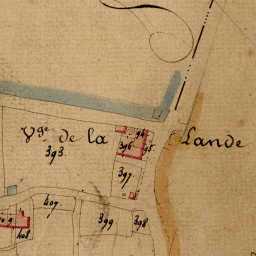 Vge de la Lande
393
396
397
407
399
398
408